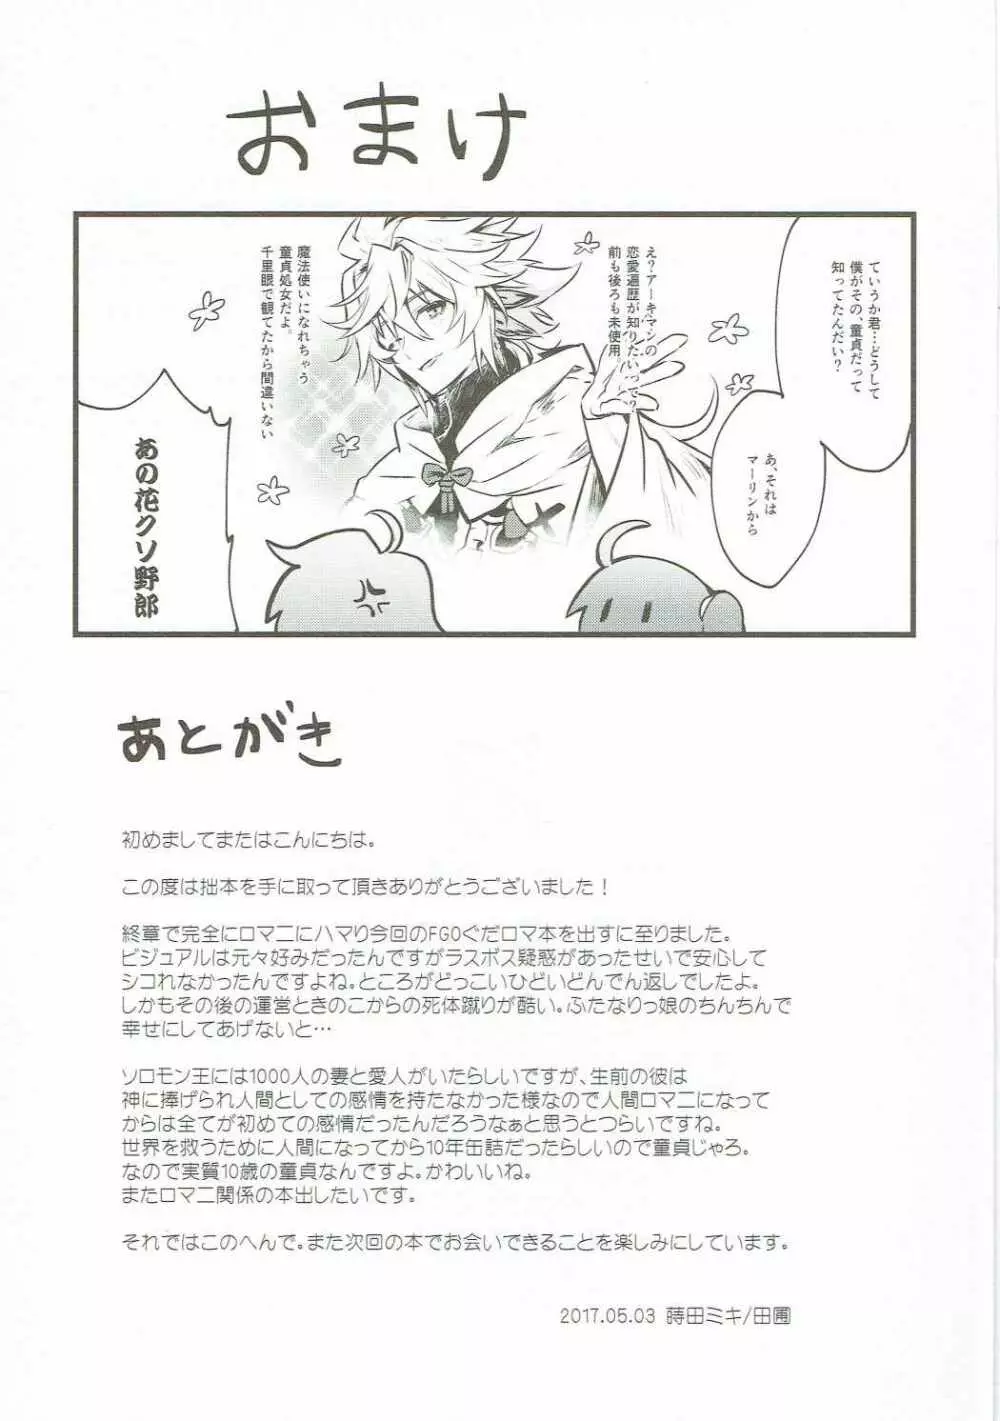 おまけ
ていうか君…どうして
僕がその、童貞だって
知ってたんだい？
あ、それは
マーリンから
え？アーキマンの
恋愛遍歴が知りたいって？
前も後ろも未使用。
魔法使いになれちゃう
童貞処女だよ。
千里眼で観てたから間違いない
あの花クソ野郎
あとがき
初めましてまたはこんにちは。
この度は拙本を手に取って頂きありがとうございました！
終章で完全にロマニにハマり今回のFGOぐだロマ本を出すに至りました。
ビジュアルは元々好みだったんですがラスボス疑惑があったせいで安心して
シコれなかったんですよね。ところがどっこいひどいどんでん返しでしたよ。
しかもその後の運営ときのこからの死体蹴りが酷い。ふたなりっ娘のちんちんで
幸せにしてあげないと…
ソロモン王には1000人の妻と愛人がいたらしいですが、生前の彼は
神に捧げられ人間としての感情を持たなかった様なので人間ロマニになって
からは全てが初めての感情だったんだろうなぁと思うとつらいですね。
世界を救うために人間になってから10年缶詰だったらしいので童貞じゃろ。
なので実質10歳の童貞なんですよ。かわいいね。
またロマニ関係の本出したいです。
それではこのへんで。また次回の本でお会いできることを楽しみにしています。
2017.05.03 蒔田ミキ/田圃